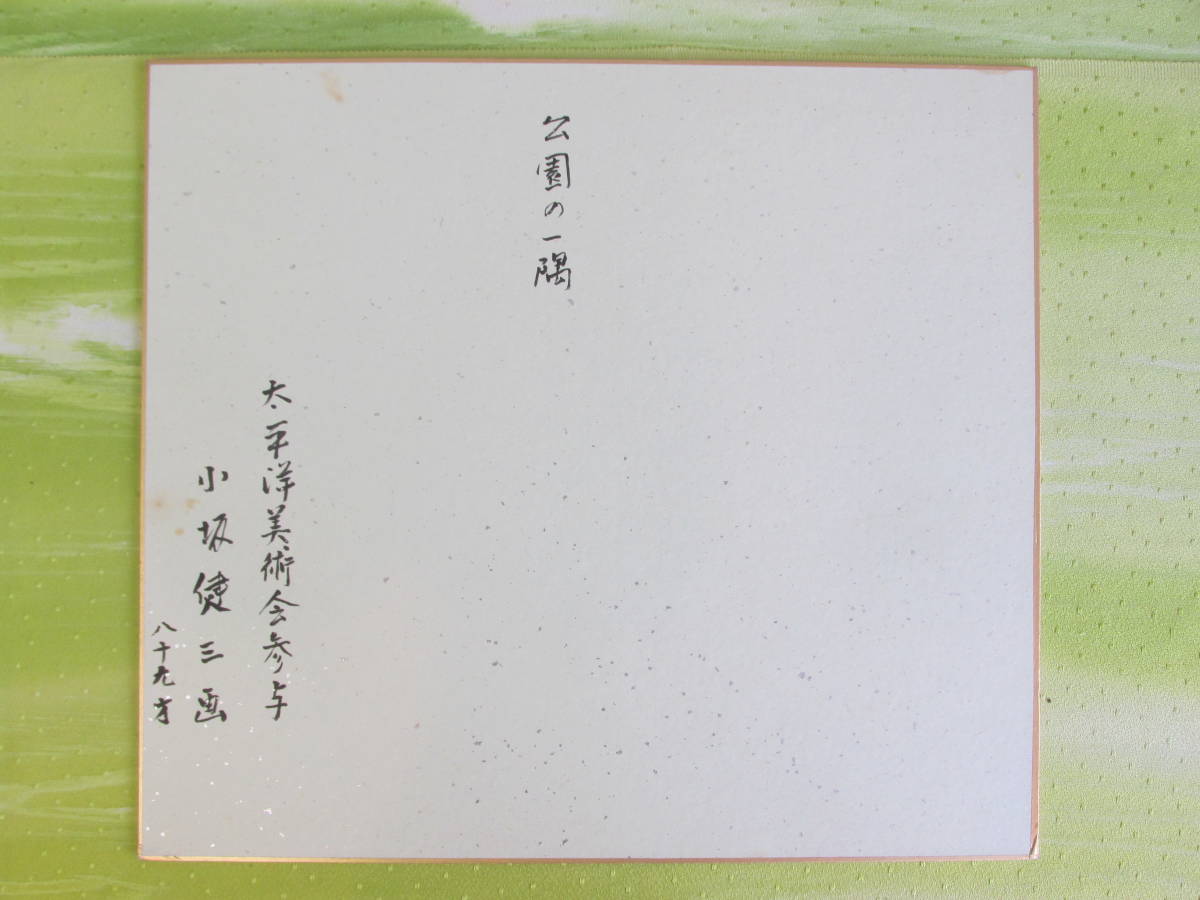 公園の一隅
太平洋美術会参与
小坂健三画
八十九才